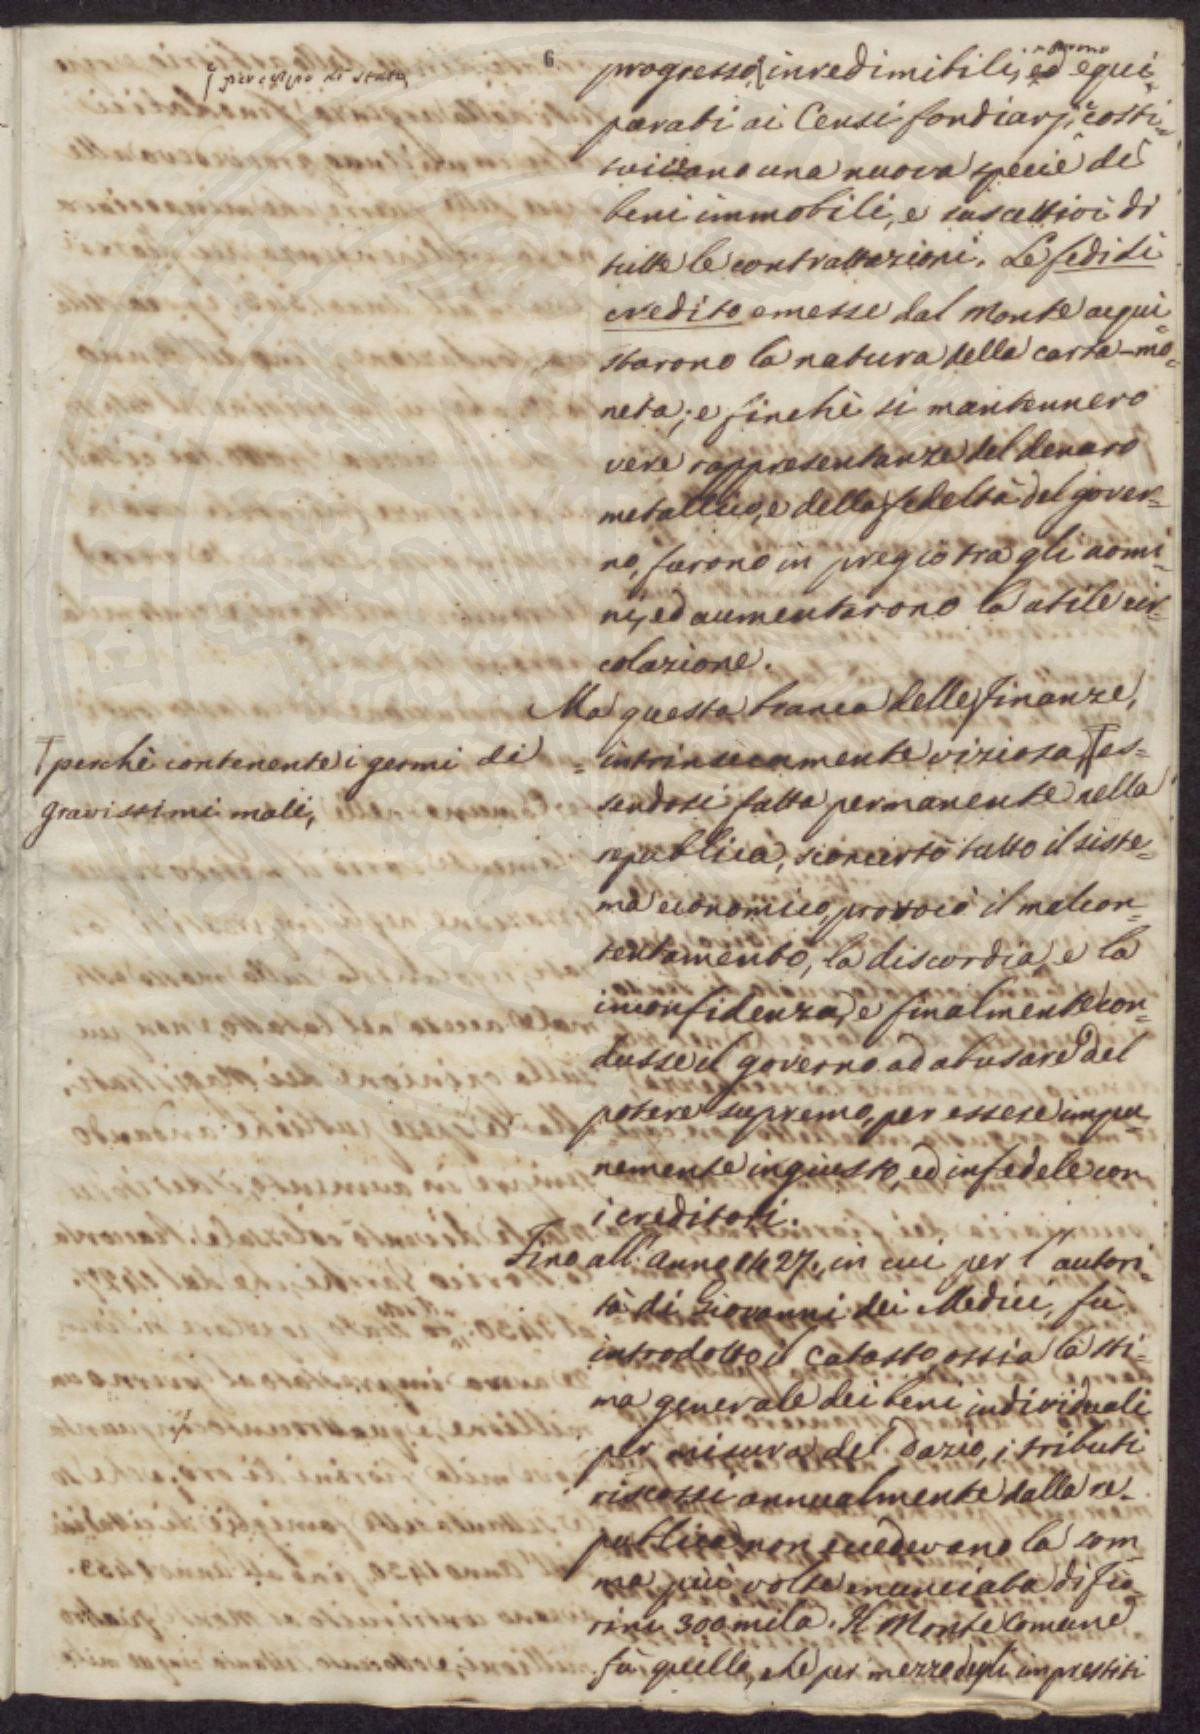 6
progresso, inredimibili, ed equi-
parati ai Censi fondiarj, costi-
tuivano una nuova specie di
beni immobili, e suscettivi di
tutte le contrattazioni. Le fedi di
credito emesse dal Monte acqui-
starono la natura della carta-mo-
neta; e finchè si mantennero
vere rappresentanze del denaro
metallico, e della fedeltà del gover-
no, furono in pregio tra gli uomi-
ni, ed aumentarono la utile cir-
colazione.
Ma questa branca delle finanze,
intrinsecamente viziosa, es-
perchè contenente i germi di
gravissimi mali,
sendosi fatta permanente nella
republica, sconcertò tutto il siste-
ma economico, provocò il malcon-
tentamento, la discordia e la
inconfidenza, e finalmente con-
dusse il governo ad abusare del
potere supremo, per essere impu-
nemente ingiusto, ed infedele con
i creditori.
Fino all'anno 1427., in cui per l'autori-
tà di Giovanni dei Medici, fù
introdotto il Catasto, ossia la sti-
ma generale dei beni individuali
per misura del Dazio, i tributi
riscossi annualmente dalla re-
publica non eccedevano la som-
ma più volte enunciata di fio-
rini 300 mila. Il Monte Comune
fù quello, che per mezzo degli imprestiti